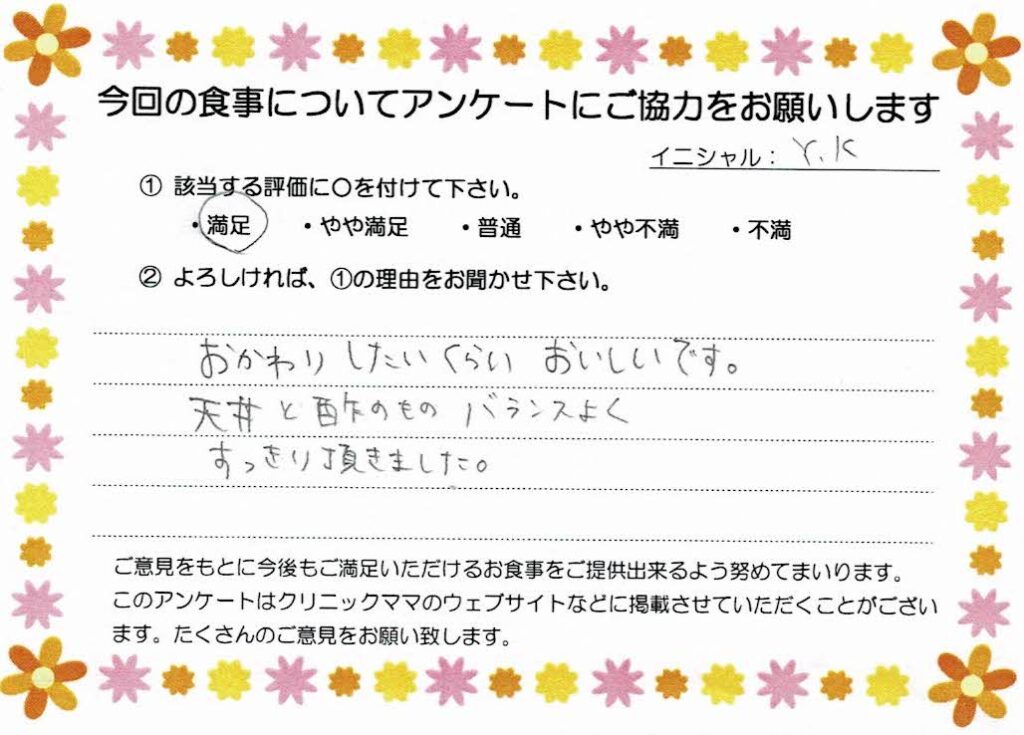 今回の食事についてアンケートにご協力をお願いします
イニシャル： Y.K
① 該当する評価に○を付けて下さい。
・満足 ・やや満足 ・普通 ・やや不満 ・不満
② よろしければ、①の理由をお聞かせ下さい。
おかわりしたいくらい おいしいです。
天丼と酢のもの バランスよく
すっきり頂きました。
ご意見をもとに今後もご満足いただけるお食事をご提供出来るよう努めてまいります。
このアンケートはクリニックママのウェブサイトなどに掲載させていただくことがござい
ます。たくさんのご意見をお願い致します。